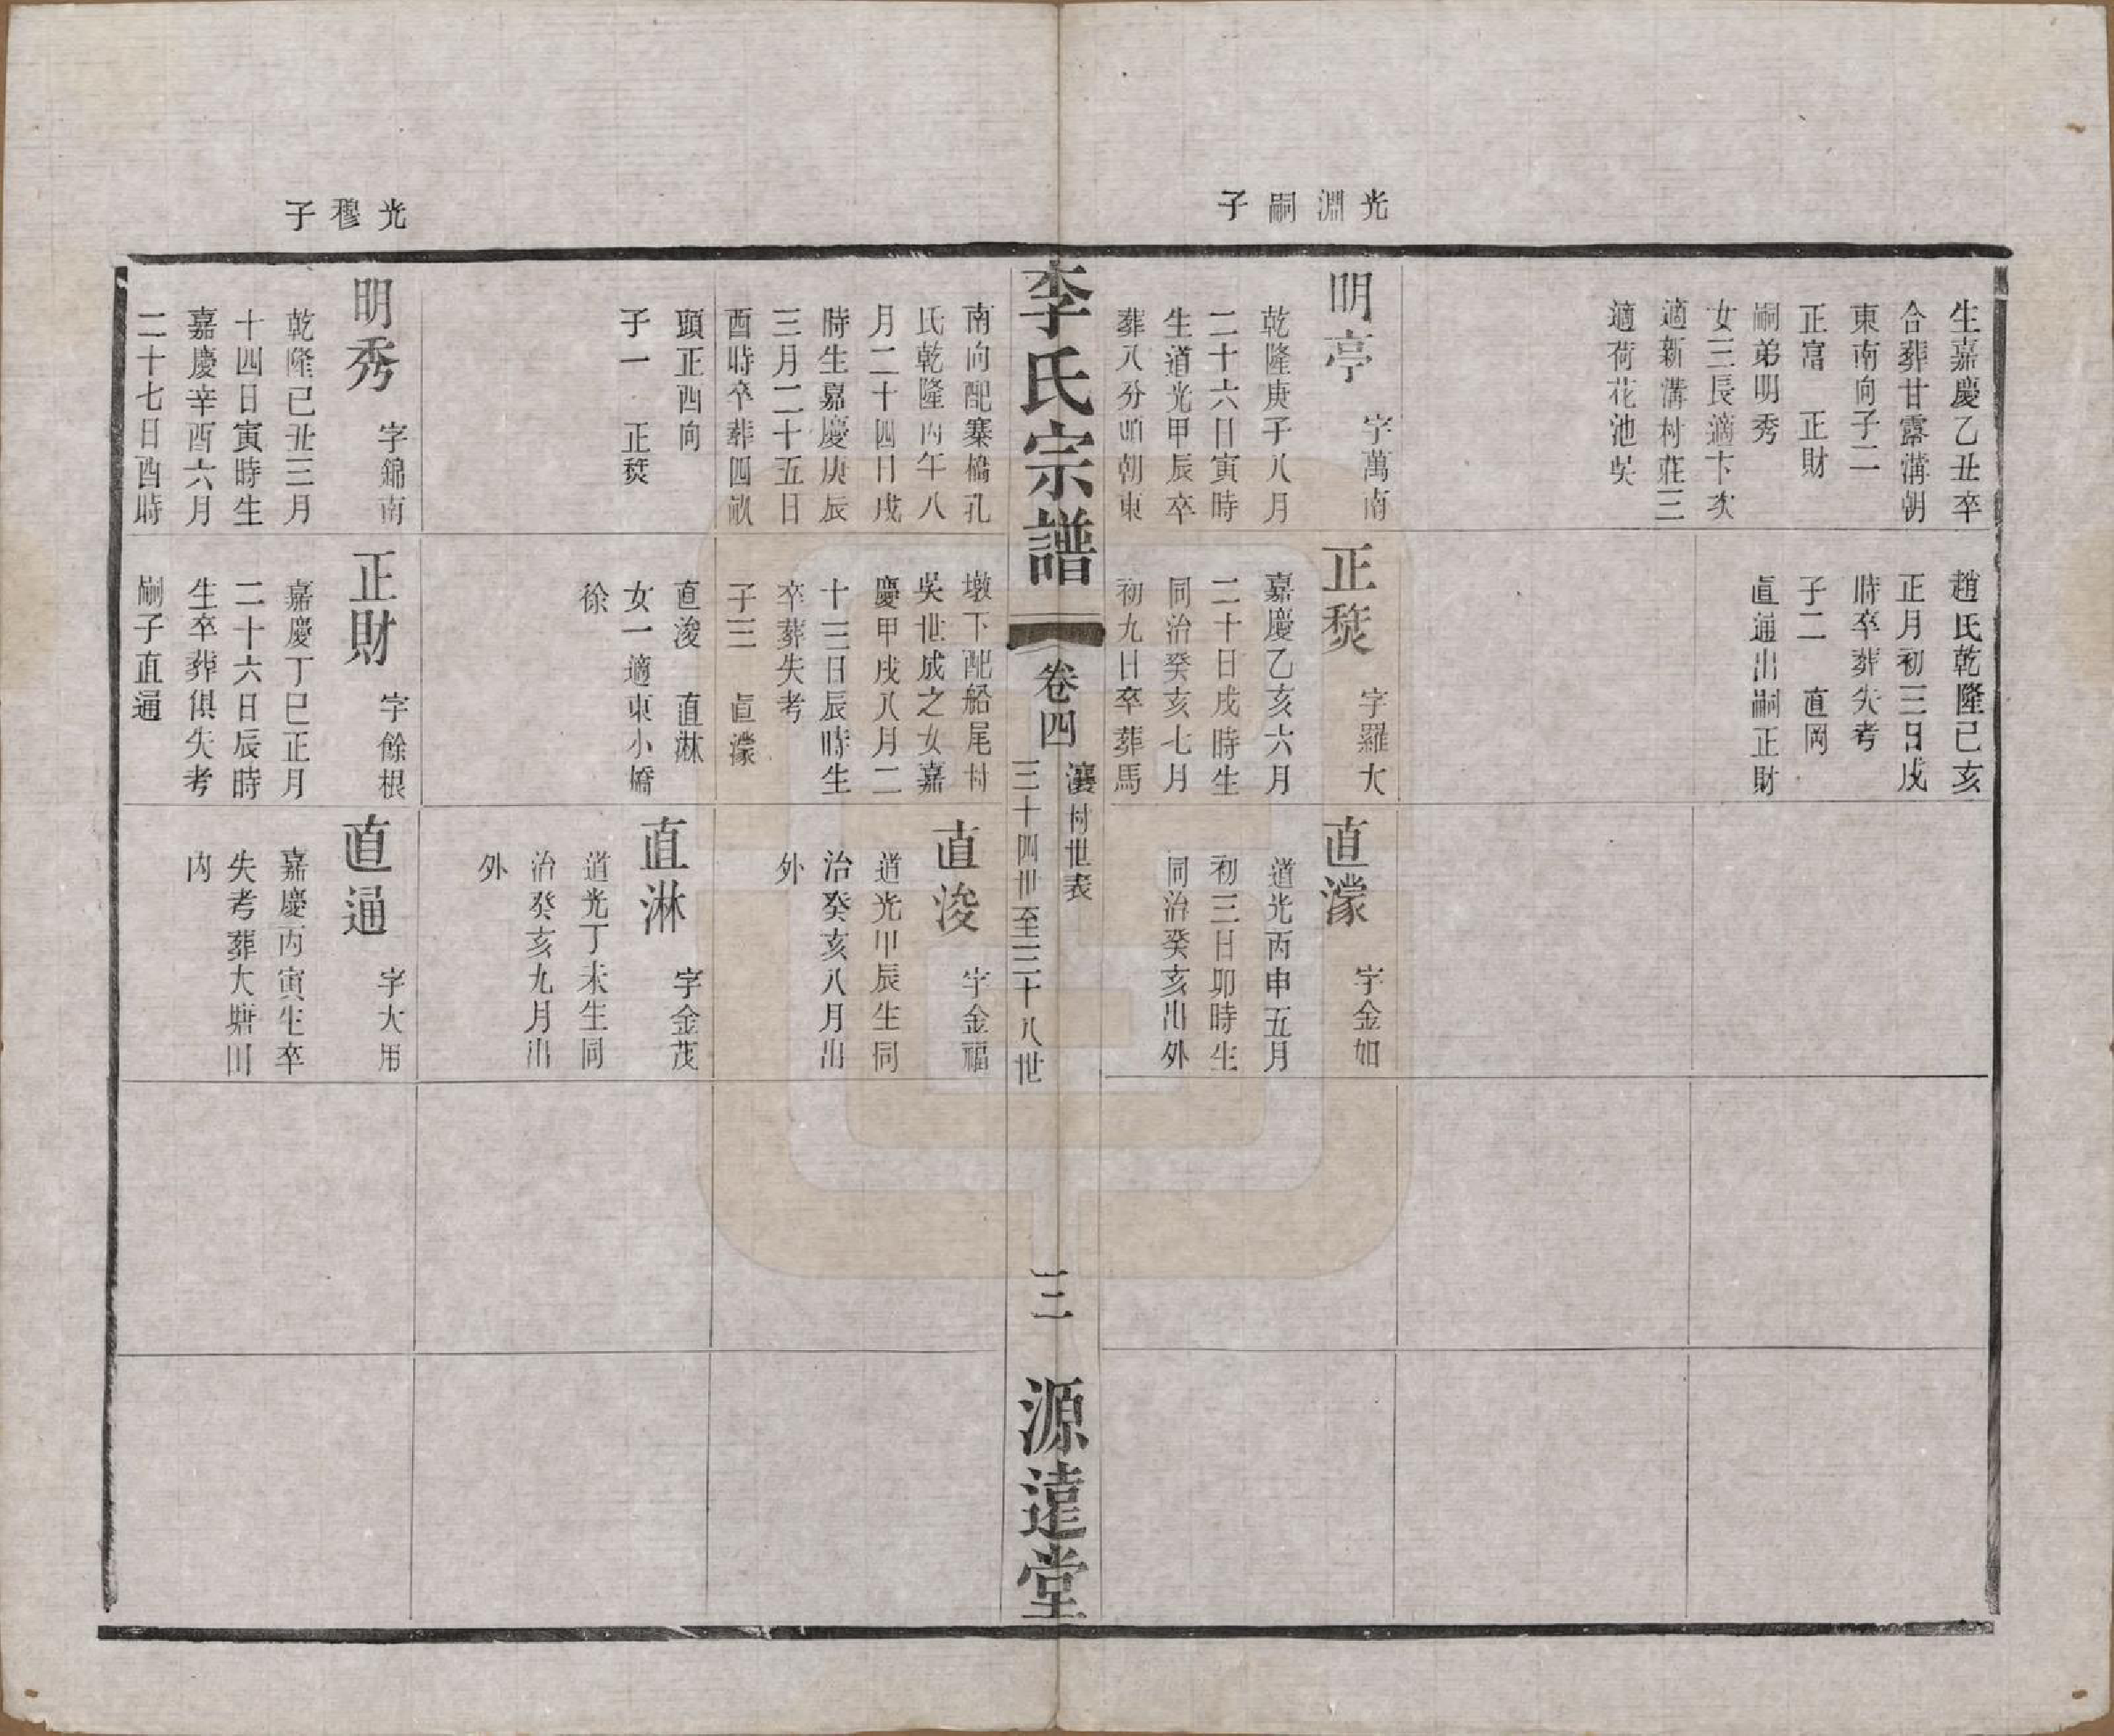 光淵嗣子
生嘉慶乙丑卒
合葬甘露溝朝
東南向子二
正富　正財
嗣弟明秀
女三長適卞次
適新溝村莊三
適荷花池吳
明亭　字萬南
乾隆庚子八月
二十六日寅時
生道光甲辰卒
葬八分頭朝東
趙氏乾隆己亥
正月初三日戌
時卒葬失考
子二　直岡
直通出嗣正財
正㷼　字羅大
嘉慶乙亥六月
二十日戌時生
同治癸亥七月
初九日卒葬馬
直濛　字金如
道光丙申五月
初三日卯時生
同治癸亥出外
李氏宗譜
卷四
瀼村世表
三十四世至三十八世
三
源遠堂
光穆子
南向配寨橋孔
氏乾隆丙午八
月二十四日戌
時生嘉慶庚辰
三月二十五日
酉時卒葬四畝
頭正西向
子一　正㷼
明秀　字錦南
乾隆己丑三月
十四日寅時生
嘉慶辛酉六月
二十七日酉時
墩下配船尾村
吳世成之女嘉
慶甲戌八月二
十三日辰時生
卒葬失考
子三　直濛
直浚　直淋
女一適東小橋
徐
正財　字餘根
嘉慶丁巳正月
二十六日辰時
生卒葬俱失考
嗣子直通
直浚　字金福
道光甲辰生同
治癸亥八月出
外
直淋　字金茂
道光丁未生同
治癸亥九月出
外
直通　字大用
嘉慶丙寅生卒
失考葬大塘田
內